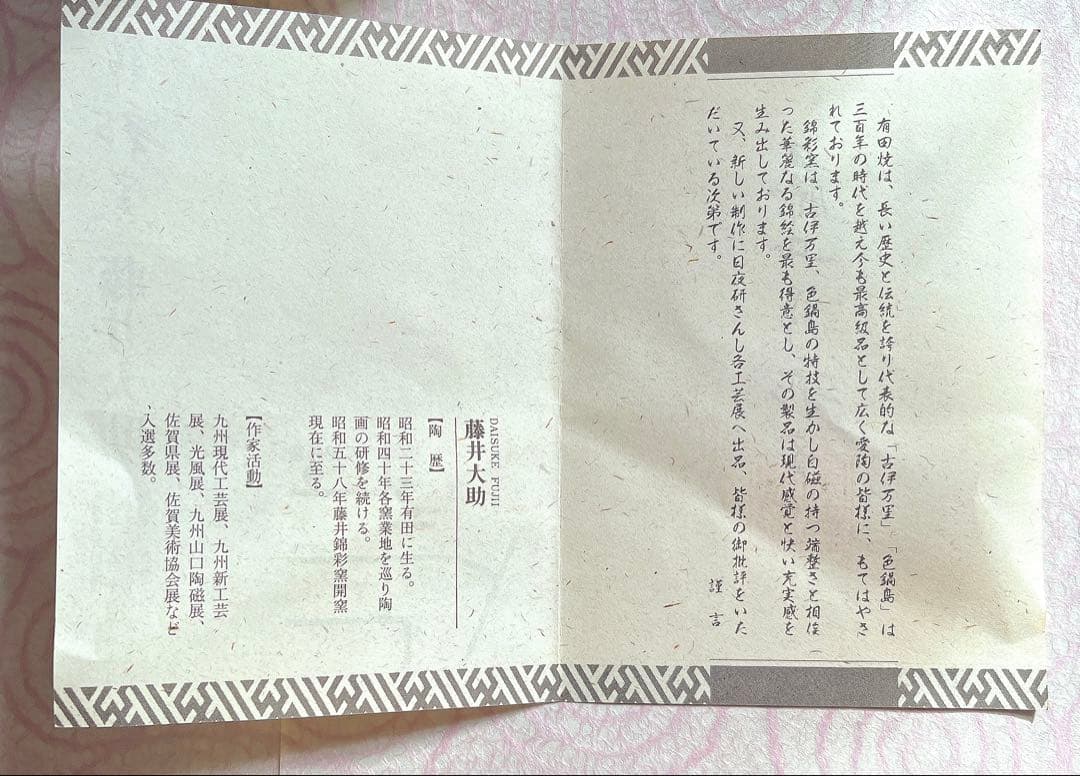 有田焼は、長い歴史と伝統を誇り代表的な「古伊万里」「色鍋島」は
三百年の時代を越え今も最高級品として広く愛陶の皆様に、もてはやさ
れております。
錦彩窯は、古伊万里、色鍋島の特技を生かし白磁の持つ端整さと相俟
った華麗なる錦絵を最も得意とし、その製品は現代感覚と快い充実感を
生み出しております。
又、新しい制作に日夜研さんし各工芸展へ出品、皆様の御批評をいた
だいている次第です。
謹言
DAISUKE FUJII
藤井大助
【陶歴】
昭和二十三年有田に生る。
昭和四十年各窯業地を巡り陶
画の研修を続ける。
昭和五十八年藤井錦彩窯開窯
現在に至る。
【作家活動】
九州現代工芸展、九州新工芸
展、光風展、九州山口陶磁展、
佐賀県展、佐賀美術協会展など
、入選多数。